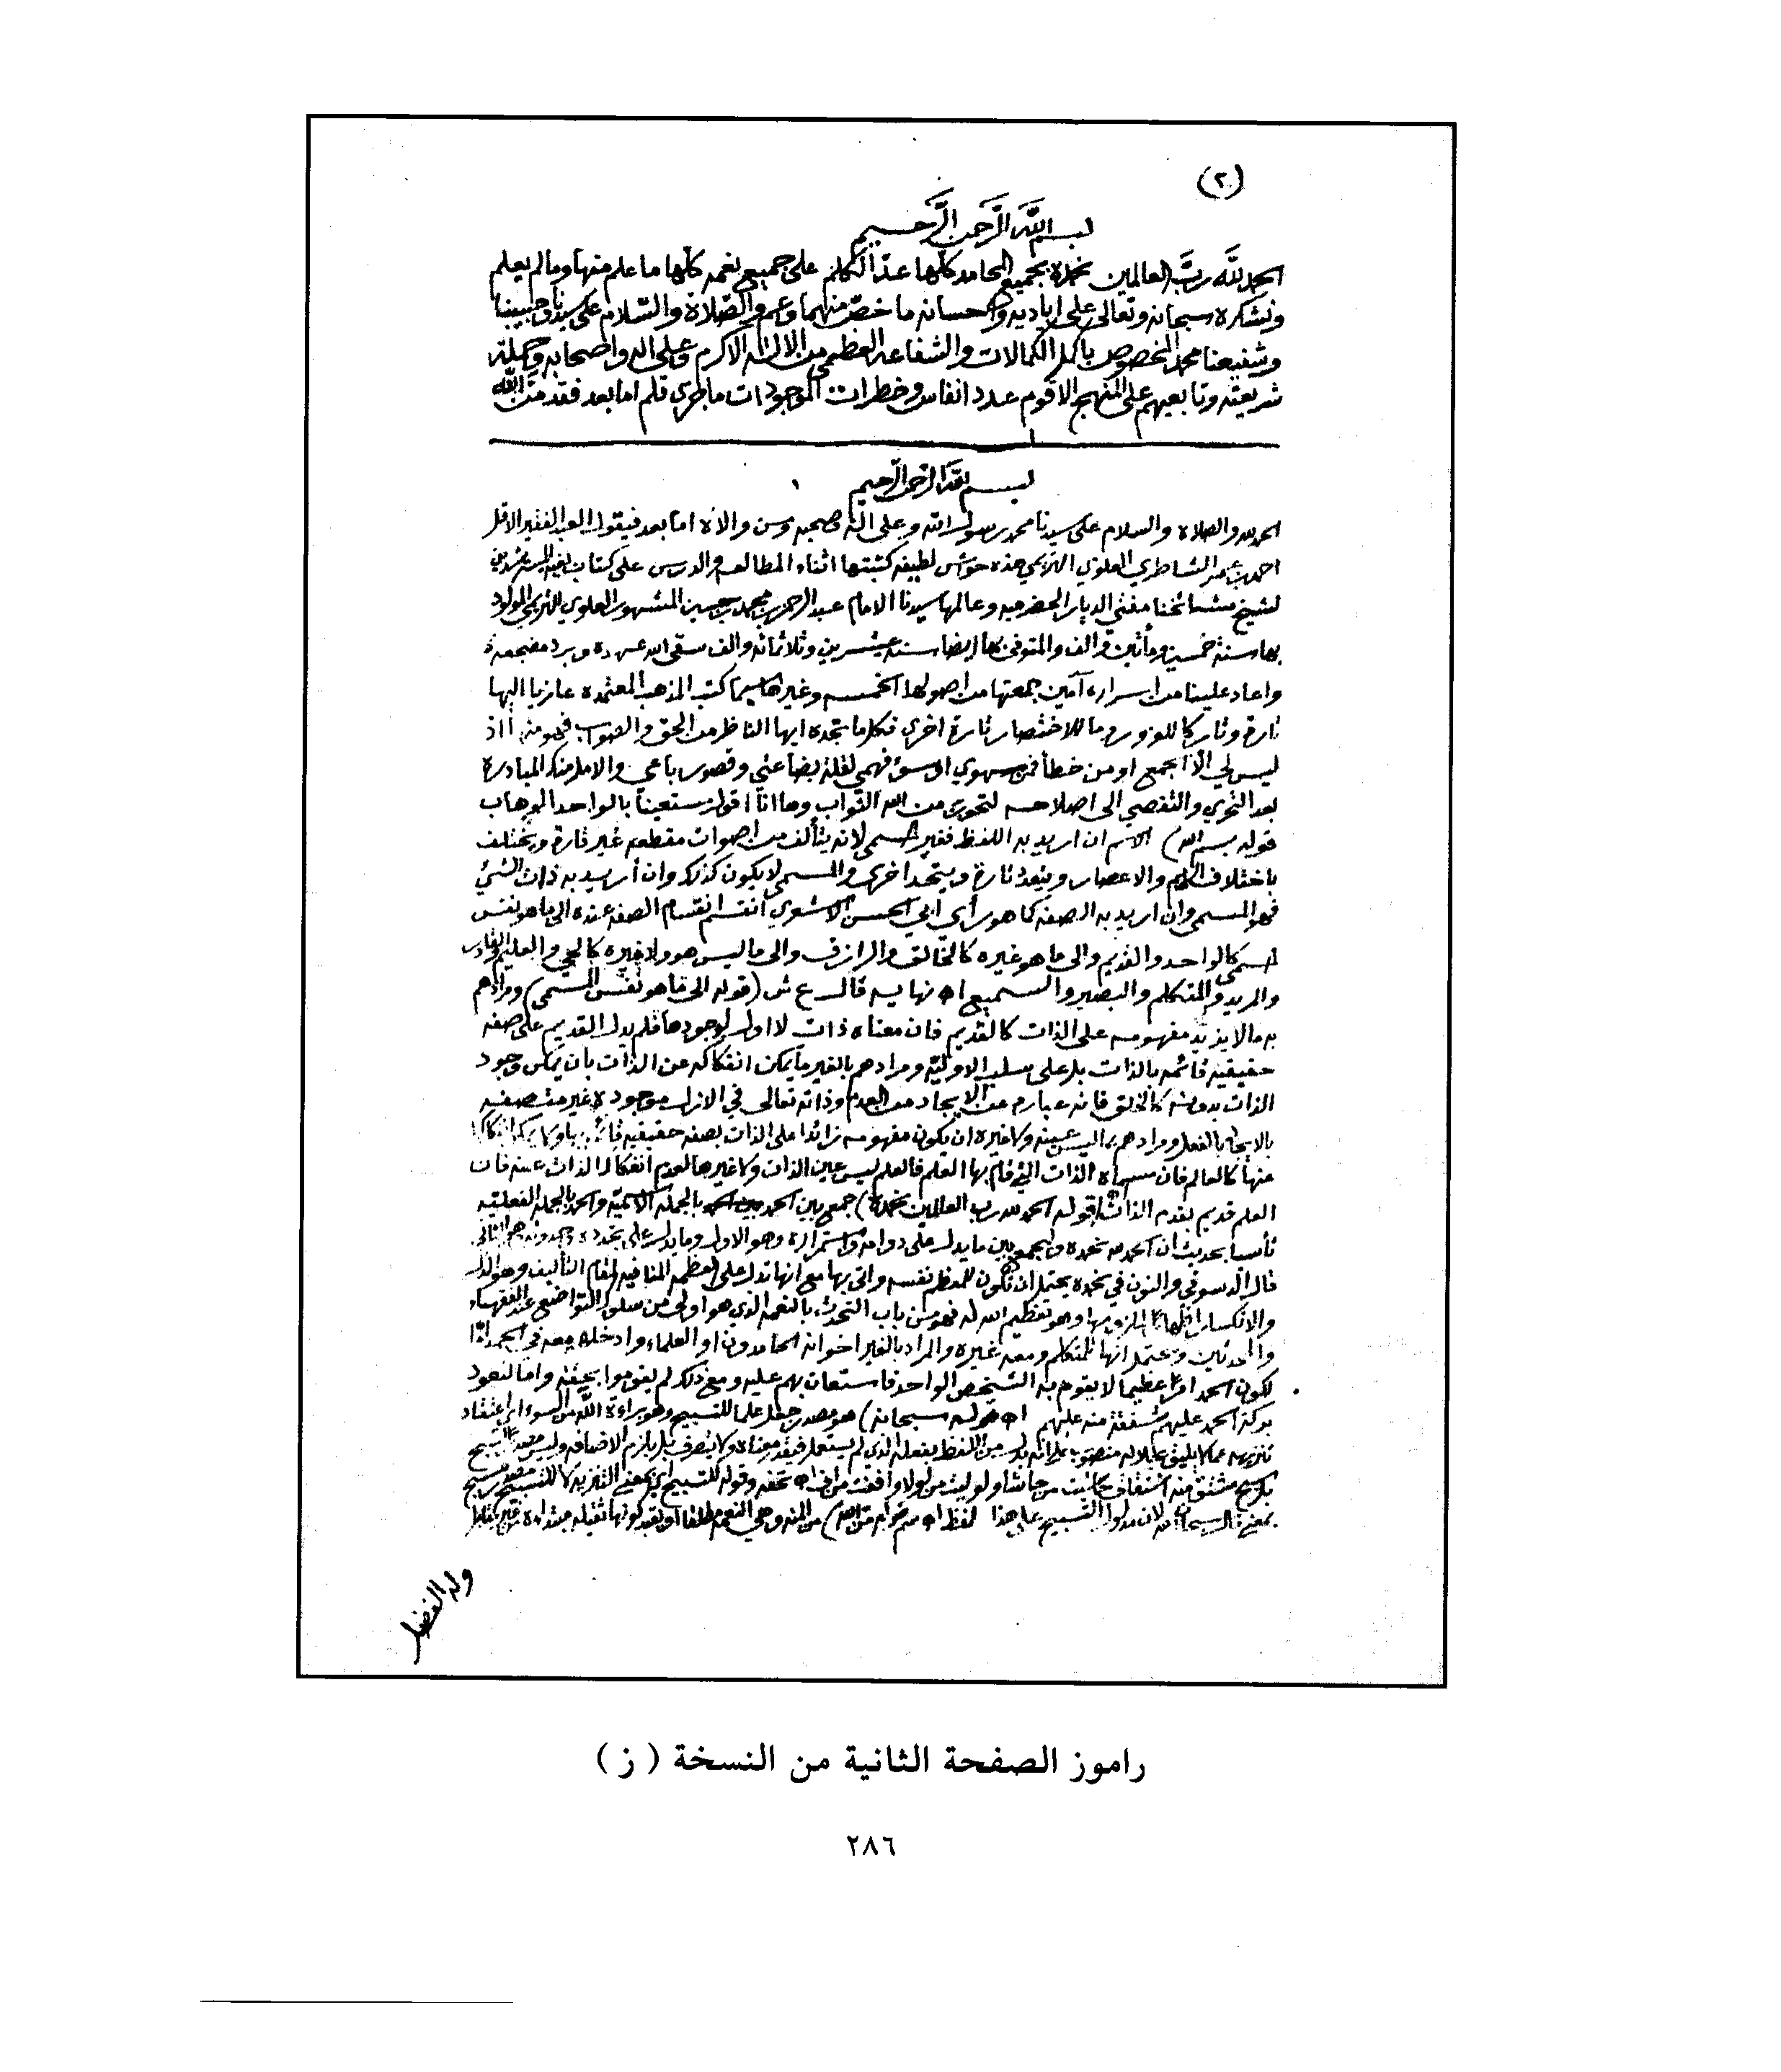 (٢)
بسم الله الرحمن الرحيم
الحمد لله رب العالمين نحمده بجميع المحامد كلها عدد الكلم على جميع نعمه كلها ما علم منها وما لم يعلم
ونشكره سبحانه وتعالى على اياديه واحسانه ما خص منهما وعم والصلاة والسلام على سيدنا وحبيبنا
وشفيعنا محمد المخصوص باكمل الكمالات والشفاعه العظمى من الاله الاكرم وعلى اله واصحابه وحملة
شريعته وتابعيهم على المنهج الاقوم عدد انفاس وخطرات الموجودات ما جرى قلم اما بعد فقد من الله
بسم الله الرحمن الرحيم
الحمد لله والصلاة والسلام على سيدنا محمد رسول الله وعلى اله وصحبه ومن والاه اما بعد فيقول العبد الفقير الاقل
احمد بن عمر الشاطري العلوي التريمي هذه حواش لطيفه كتبتها اثناء المطالعه والدرس على كتاب بغية المسترشدين
لشيخ مشائخنا مفتي الديار الحضرميه وعالمها سيدنا الامام عبد الرحمن بن محمد بن حسين المشهور العلوي التريمي المولود
بها سنة خمسين ومأتين والف والمتوفى بها ايضا سنه عشرين وثلاثمائه والف سقى الله عهده وبرد مضجعه
واعاد علينا من اسراره آمين جمعتها من اصولها الخمسه وغيرها سيما كتب المذهب المعتمده عازيا اليها
تارة وتاركا للعزو روما للاختصار تارة اخرى فكل ما تجده ايها الناظر من الحق والصواب فهو منهم اذ
ليس لي الا الجمع او من خطأ فمن سهوي او سوء فهمي لقلة بضاعتي وقصور باعي والامل منك المبادرة
بعد التحري والتقصي الى اصلاحه لتحوز من الله الثواب وها انا اقول مستعينا بالواحد الوهاب
قوله بسم الله) الاسم ان اريد به اللفظ فغير المسمى لانه يتألف من اصوات مقطعه غير قارة ويختلف
باختلاف الامم والاعصار ويتعدد تارة ويتحد اخرى والمسمى لا يكون كذلك وان أريد به ذات الشئ
فهو المسمى وان اريد به الصفه كما هو رأى ابي الحسن الاشعري انقسم انقسام الصفه عنده الى ما هو نفس
المسمى كالواحد والقديم والى ما هو غيره كالخالق والرازق والى ما ليس هو ولا غيره كالحي والعليم والقادر
والمريد والمتكلم والبصير والسميع اه نهايه قال ع ش (قوله الى ما هو نفس المسمى) ومرادهم
به ما لا يزيد مفهومه على الذات كالقديم فان معناه ذات لا اول لوجودها فلم يدل القديم على صفه
حقيقية قائمه بالذات بل على سلب الاوليه ومرادهم بالغير ما يمكن انفكاكه عن الذات بأن يمكن وجود
الذات بدونه كالخالق فانه عباره عن الايجاد من العدم وذاته تعالى في الازل موجودة غير متصفه
بالايجاد بالفعل ومرادهم بما ليس عينه ولا غيره ان يكون مفهومه زائدا على الذات بصفه حقيقيه
عنها كالعالم فان مسماه الذات التي قام بها العلم فالعلم ليس عين الذات ولا غيرها لعدم انفكاك الذات عنه فان
العلم قديم بقدم الذات اه قوله الحمد لله رب العالمين نحمده) جمع بين الحمد بالجمله الاسميه والحمد بالجمله الفعليه
تأسيا بحديث ان الحمد لله نحمده وليجمع بين ما يدل على دوامه واستمراره وهو الاول وما يدل على تجدده وحدوثه وهو الثاني
قال الدسوقي والنون في نحمده يحتمل ان تكون للمعظم نفسه واتى بها مع انها تدل على العظمه المنافيه لمقام التأليف وهو الذل
والانكسار اظهارا لملزومها وهو تعظيم الله له فهو من باب التحدث بالنعمه الذي هو اولى من سلوك التواضع عند الفقهاء
والمحدثين ويحتمل انها للمتكلم ومعه غيره والمراد بالغير اخوانه الحامدون او العلماء وادخلهم معه في الحمد اما
لكون الحمد امرا عظيما لا يقوم به الشخص الواحد فاستعان بهم عليه ومع ذلك لم يقوموا بحقه واما لتعود
بركة الحمد عليهم شفقة منه عليهم اه قوله سبحانه) هو مصدر جعل علما للتسبيح وهو براءة الله من السوء اي اعتقاد
تنزيهه عما لا يليق بجلاله منصوب على انه بدل من اللفظ بفعله الذي لم يستعمل
بمعنى قال سبحان الله لان مدلول التسبيح على هذا لفظ اه
وله الفضل
راموز الصفحة الثانية من النسخة ( ز )
٢٨٦